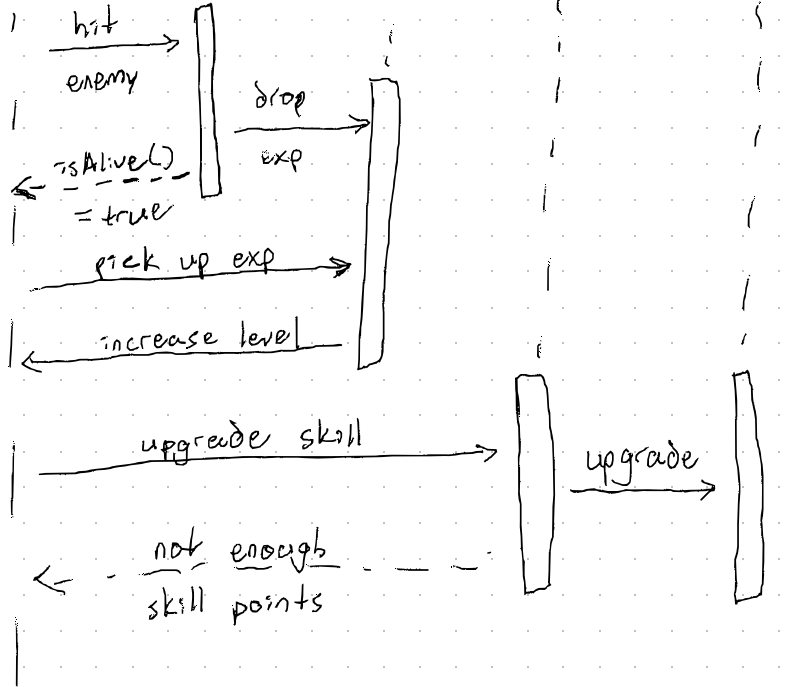 hit
enemy
drop
exp
isAlive()
= true
pick up exp
increase level
upgrade skill
upgrade
not enough
skill points